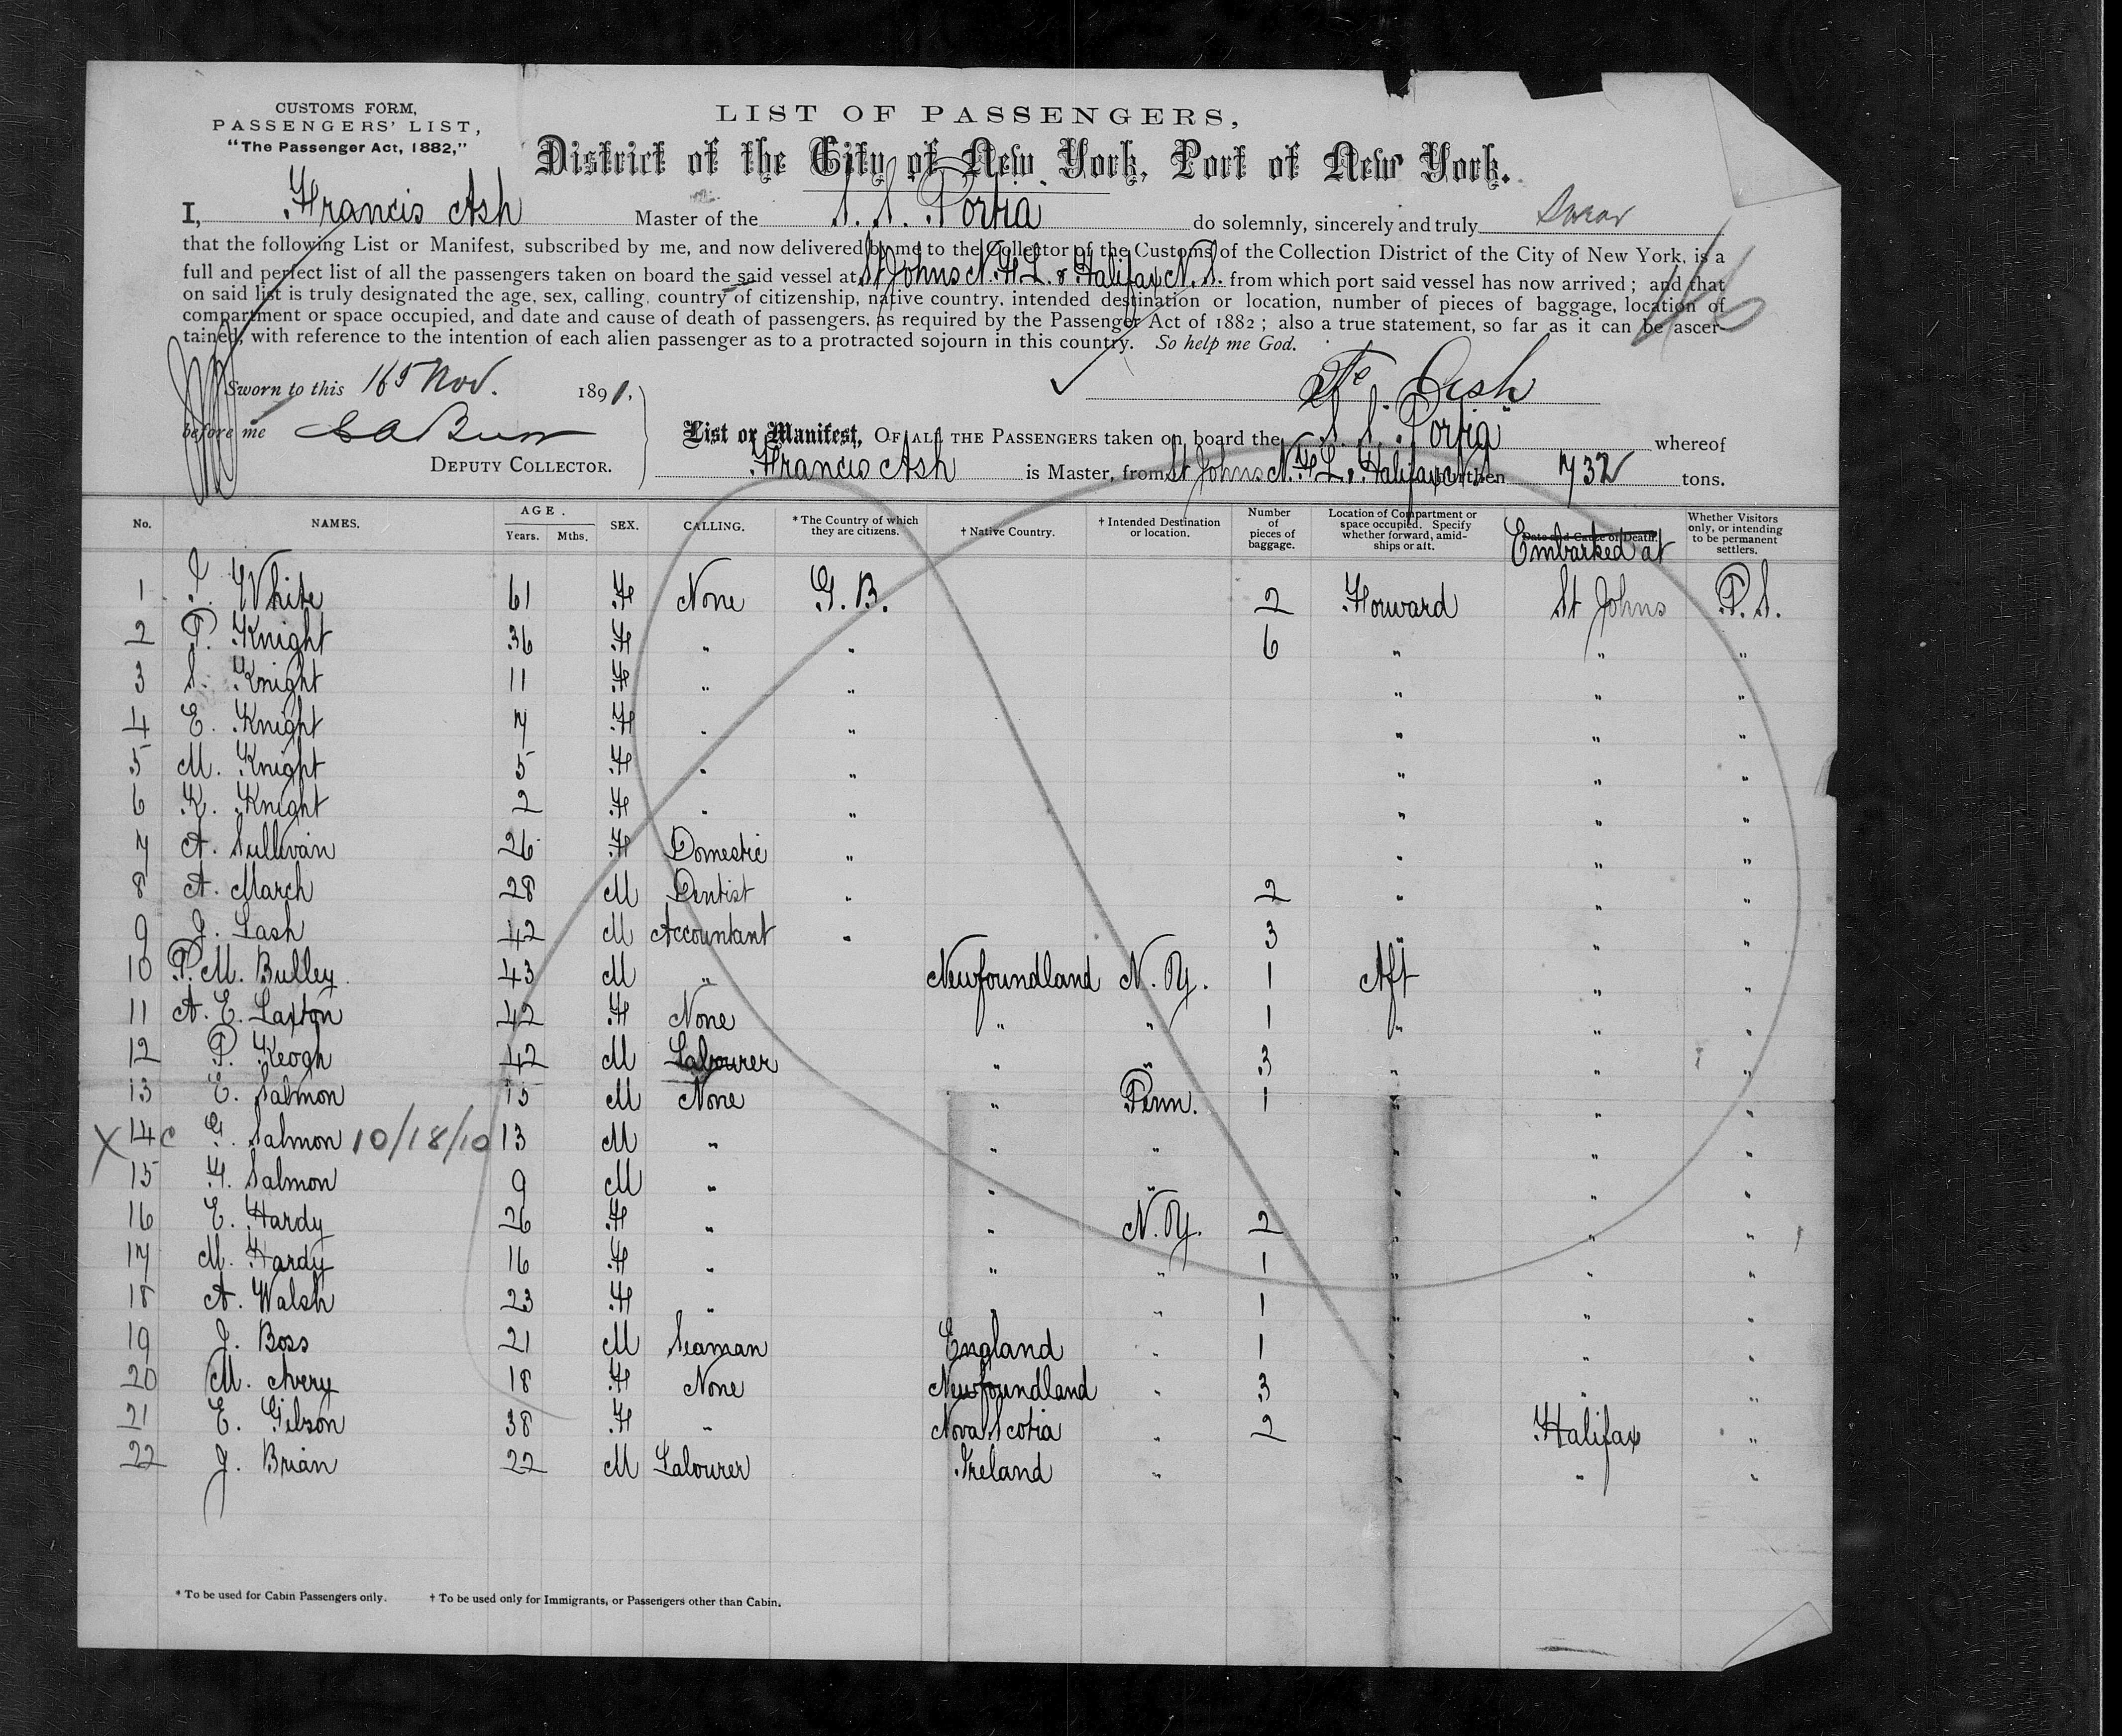 CUSTOMS FORM,
PASSENGERS' LIST,
"The Passenger Act, 1882,"
LIST OF PASSENGERS,
District of the City of New York, Port of New York.
I, Francis Ash Master of the S. S. Portia do solemnly, sincerely and truly swear
that the following List or Manifest, subscribed by me, and now delivered by me to the Collector of the Customs of the Collection District of the City of New York, is a
full and perfect list of all the passengers taken on board the said vessel at St Johns N. F L. & Halifax N. S. from which port said vessel has now arrived; and that
on said list is truly designated the age, sex, calling, country of citizenship, native country, intended destination or location, number of pieces of baggage, location of
compartment or space occupied, and date and cause of death of passengers, as required by the Passenger Act of 1882; also a true statement, so far as it can be ascer-
tained, with reference to the intention of each alien passenger as to a protracted sojourn in this country. So help me God.
16
Sworn to this 16 Nov. 1891,
Ash
before me
DEPUTY COLLECTOR.
List or Manifest, OF ALL THE PASSENGERS taken on board the S. S. Portia whereof
Francis Ash is Master, from St Johns N. F L. & Halifax N S burthen 732 tons.
No. NAMES. AGE. Years. Mths. SEX. CALLING. * The Country of which they are citizens. † Native Country. † Intended Destination or location. Number of pieces of baggage. Location of Compartment or space occupied. Specify whether forward, amid-ships or aft. Date and Cause of Death. Embarked at Whether Visitors only, or intending to be permanent settlers.
1 White 61 F None G. B. 2 Forward St Johns P. S.
2 P. Knight 36 F " " 6 " " "
3 S. Knight 11 F " " " " "
4 E. Knight 7 F " " " " "
5 M. Knight 5 F " " " " "
6 K. Knight 2 F " " " " "
7 A. Sullivan 26 F Domestic " " " "
8 A. March 28 M Dentist " 2 " " "
9 J. Lash 42 M Accountant " 3 " " "
10 P. M. Bulley 43 M " Newfoundland N. Y. 1 Aft " "
11 A. E. Laxton 42 F None " " 1 " " "
12 P. Keogh 42 M Labourer " " 3 " " "
13 E. Salmon 15 M None " Penn. 1 " " "
X 14 c G. Salmon 10/18/10 13 M " " " " " "
15 F. Salmon 9 M " " " " " "
16 E. Hardy 26 F " " N. Y. 2 " " "
17 M. Hardy 16 F " " " 1 " " "
18 A. Walsh 23 F " " " 1 " " "
19 J. Boss 21 M Seaman England " 1 " " "
20 M. Avery 18 F None Newfoundland " 3 " " "
21 E. Gibson 38 F " Nova Scotia " 2 " Halifax "
22 J. Brian 22 M Labourer Ireland " " " "
* To be used for Cabin Passengers only. † To be used only for Immigrants, or Passengers other than Cabin.